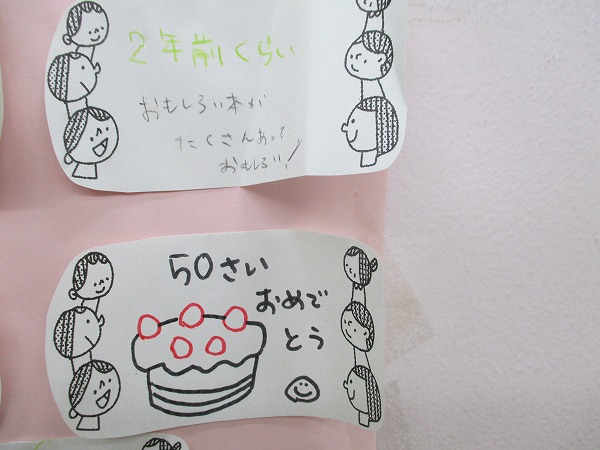 2年前くらい
おもしろい本が
たくさんあって
おもしろい!
50さい
おめで
とう